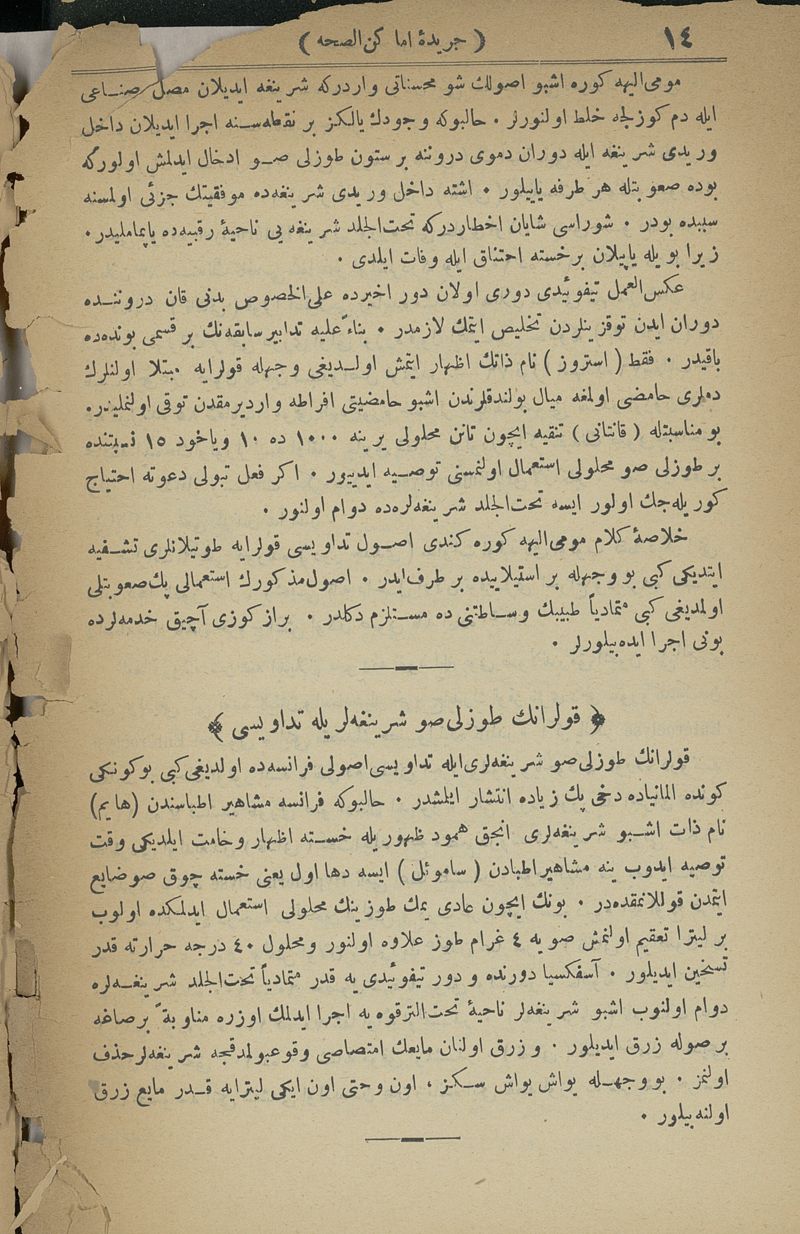 ١٤
( جريدۀ اماكن الصحه )
مومی‌الیهه كوره اشبو اصولك شو محسناتی واردركه شرینغه ایدیلان مصل صناعی
ایله دم كوزلجه خلط اولنورلر . حالبوكه وجودك یالكز بر نقطه‌سنه اجرا ایدیلان داخل
وریدی شرینغه ایله دوران دموی دروننه بر ستون طوزلی صو ادخال ایدلمش اولوركه
بوده صعوبتله هر طرفه یاییلور . اشته داخل وریدی شرینغه‌ده موفقیتك جزئی اولمسنه
سببده بودر . شوراسی شایان اخطاردركه تحت‌الجلد شرینغه یی ناحیۀ رقبیه‌ده یاپماملیدر .
زیرا بویله یاپیلان برخسته احتناق ایله وفات ایلدی .
عكس‌العمل تیفوئیدی دوری اولان دور اخیرده علی‌الخصوص بدنی قان دروننده
دوران ایدن توقزینلردن تخلیص ایتمك لازمدر . بناءً علیه تدابیر سابقه‌نك بر قسمی بونده‌ده
باقیدر . فقط ( استروز ) نام ذاتك اظهار ایتمش اولدیغی وجهله قولرایه مبتلا اولنلرك
دملری حامضی اولمغه میال بولندقلرندن اشبو حامضیتی افراطه واردیرمقدن توقی اولنملیدر.
بو مناسبتله ( قانتانی ) تنقیه ایچون تانن محلولی یرینه ١٠٠٠ ده ١٠ ویاخود ١٥ نسبتنده
بر طوزلی صو محلولی استعمال اولنمسنی توصیه ایدییور . اكر فعل تبولی دعوته احتیاج
كوریله‌جك اولور ایسه تحت‌الجلد شرینغه‌لره‌ده دوام اولنور .
خلاصۀ كلام مومی‌الیهه كوره كندی اصول تداویسی قولرایه طوتیلانلری تشفیه
ایتدیكی كبی بو وجهله بر استیلاییده بر طرف‌ایدر . اصول‌مذكورك استعمالی پك‌صعوبتلی
اولمدیغی كبی متمادیاً طبیبك وساطتنی ده مستلزم دكلدر . براز كوزی آچیق خدمه‌لرده
بونی اجرا ایده‌بیلورلر .
﴿ قولرانك طوزلی صو شرینغه‌لریله تداویسی ﴾
قولرانك طوزلی صو شرینغه‌لری‌ایله تداویسی اصولی فرانسه‌ده اولدیغی كبی بوكونكی
كونده المانیاده دخی پك زیاده انتشار ایلمشدر . حالبوكه فرانسه مشاهیر اطباسندن (هایم)
نام ذات اشبو شرینغه‌لری انجق همود ظهوریله خسته اظهار وخامت ایلدیكی وقت
توصیه ایدوب ینه مشاهیر اطبادن ( ساموئل ) ایسه دها اول یعنی خسته چوق صو ضایع
ایتمدن قوللانمقده‌در . بونك ایچون عادی یمك طوزینك محلولی استعمال ایدلمكده اولوب
بر لیترا تعقیم اولنمش صویه ٤ غرام طوز علاوه اولنور و محلول ٤٠ درجه حرارته قدر
تسخین ایدیلور . آسفكسیا دورنده و دور تیفوئیدی یه قدر متمادیاً تحت‌الجلد شرینغه‌لره
دوام اولنوب اشبو شرینغه‌لر ناحیۀ تحت‌الترقوه یه اجرا ایدلمك اوزره مناوبةً برصاغه
برصوله زرق ایدیلور . و زرق اولنان مایعك امتصاصی وقوعبولمدقجه شرینغه‌لر حذف
اولنمز . بو وجهله یواش یواش سكز ، اون وحتی اون ایكی لیترایه قدر مایع زرق
اولنه‌بیلور .